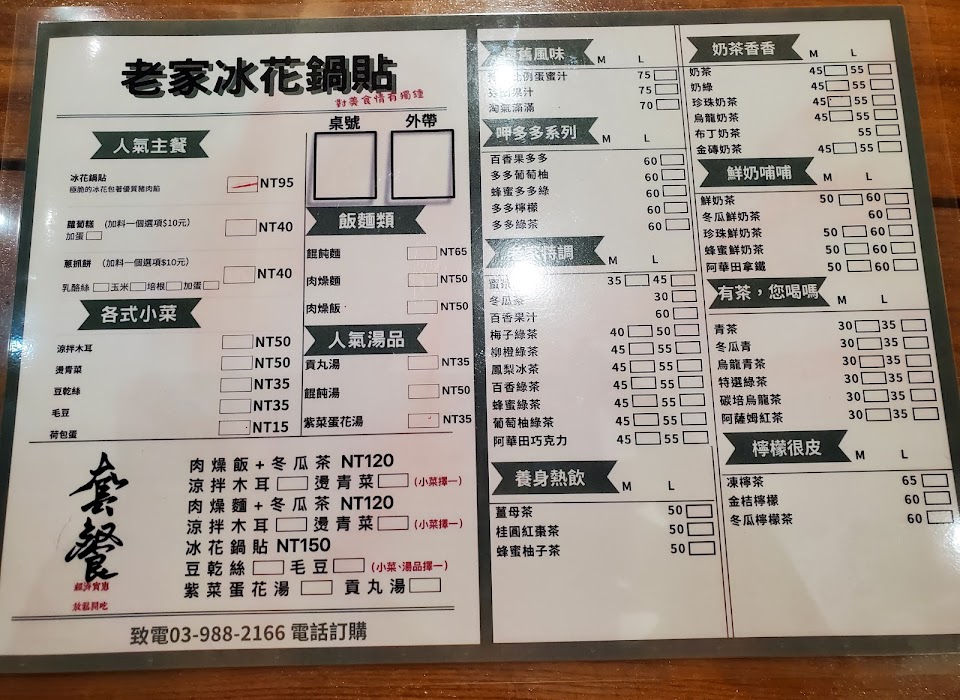 老家冰花鍋貼
對美食情有獨鍾
人氣主餐
桌號 外帶
冰花鍋貼 NT95
極脆的冰花包著優質豬肉餡
蘿蔔糕 (加料一個選項$10元) NT40
加蛋
蔥抓餅 (加料一個選項$10元) NT40
乳酪絲 玉米 培根 加蛋
各式小菜
涼拌木耳 NT50
燙青菜 NT50
豆乾絲 NT35
毛豆 NT35
荷包蛋 NT15
飯麵類
餛飩麵 NT65
肉燥麵 NT50
肉燥飯 NT50
人氣湯品
貢丸湯 NT35
餛飩湯 NT50
紫菜蛋花湯 NT35
套餐
經濟實惠
放鬆開吃
肉燥飯+冬瓜茶 NT120
涼拌木耳 燙青菜 (小菜擇一)
肉燥麵+冬瓜茶 NT120
涼拌木耳 燙青菜 (小菜擇一)
冰花鍋貼 NT150
豆乾絲 毛豆 (小菜、湯品擇一)
紫菜蛋花湯 貢丸湯
致電03-988-2166 電話訂購
舊風味 M L
比例蛋蜜汁 75
果汁 75
淘氣滿滿 70
呷多多系列 M L
百香果多多 60
多多葡萄柚 60
蜂蜜多多綠 60
多多檸檬 60
多多綠茶 60
特調 M L
35 45
冬瓜茶 30
百香果汁 60
梅子綠茶 40 50
柳橙綠茶 45 55
鳳梨冰茶 45 55
百香綠茶 45 55
蜂蜜綠茶 45 55
葡萄柚綠茶 45 55
阿華田巧克力 45 55
養身熱飲 M L
薑母茶 50
桂圓紅棗茶 50
蜂蜜柚子茶 50
奶茶香香 M L
奶茶 45 55
奶綠 45 55
珍珠奶茶 45 55
烏龍奶茶 45 55
布丁奶茶 55
金磚奶茶 45 55
鮮奶哺哺 M L
鮮奶茶 50 60
冬瓜鮮奶茶 60
珍珠鮮奶茶 50 60
蜂蜜鮮奶茶 50 60
阿華田拿鐵 50 60
有茶，您喝嗎 M L
青茶 30 35
冬瓜青 30 35
烏龍青茶 30 35
特選綠茶 30 35
碳培烏龍茶 30 35
阿薩姆紅茶 30 35
檸檬很皮 M L
凍檸茶 65
金桔檸檬 60
冬瓜檸檬茶 60